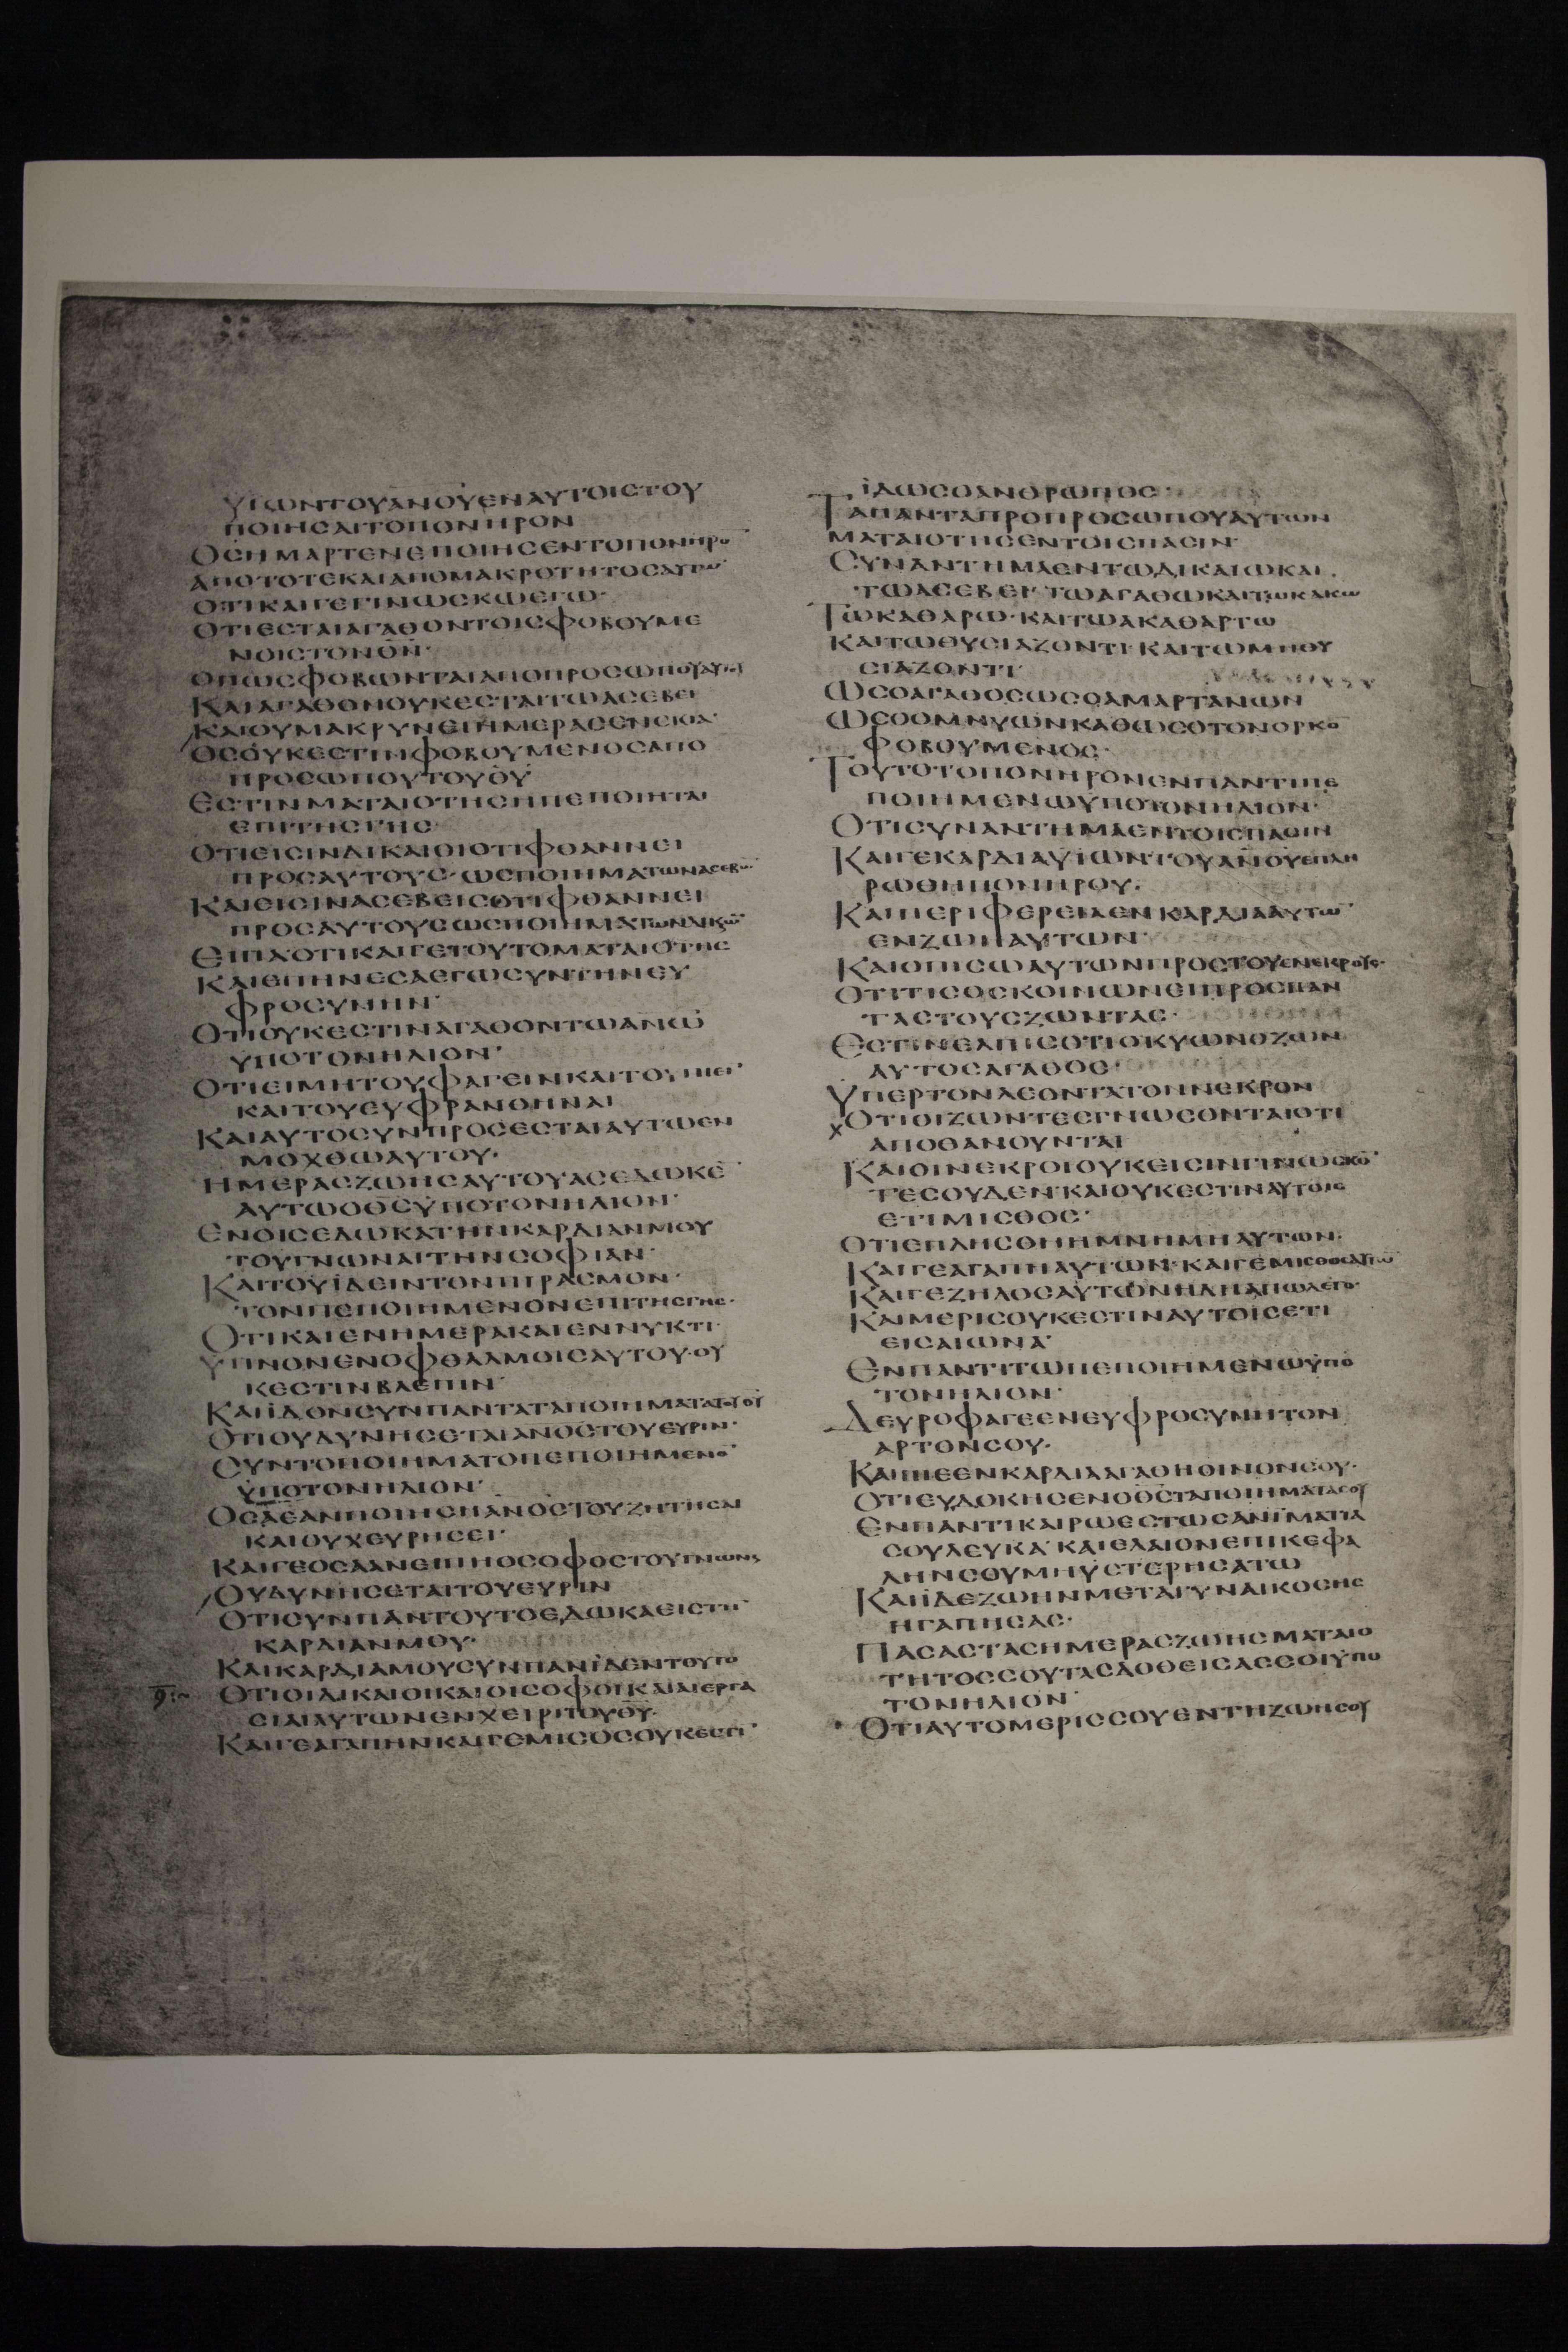 ΥΙΩΝΤΟΥΑΝΟΥΕΝΑΥΤΟΙΣΤΟΥ
ΠΟΙΗΣΑΙΤΟΠΟΝΗΡΟΝ
ΟΣΗΜΑΡΤΕΝΕΠΟΙΗΣΕΝΤΟΠΟΝΗΡΟ̅
ΑΠΟΤΟΤΕΚΑΙΑΠΟΜΑΚΡΟΤΗΤΟΣΑΥΤΩ̅
ΟΤΙΚΑΙΓΕΓΙΝΩΣΚΩΕΓΩ·
ΟΤΙΕΣΤΑΙΑΓΑΘΟΝΤΟΙΣΦΟΒΟΥΜΕ
ΝΟΙΣΤΟΝΘ̅Ν̅·
ΟΠΩΣΦΟΒΩΝΤΑΙΑΠΟΠΡΟΣΩΠΟΥΑΥΤΟΥ
ΚΑΙΑΓΑΘΟΝΟΥΚΕΣΤΑΙΤΩΑΣΕΒΕΙ
ΚΑΙΟΥΜΑΚΡΥΝΕΙΗΜΕΡΑΣΕΝΣΚΙΑ·
ΟΣΟΥΚΕΣΤΙΝΦΟΒΟΥΜΕΝΟΣΑΠΟ
ΠΡΟΣΩΠΟΥΤΟΥΘ̅Υ̅
ΕΣΤΙΝΜΑΤΑΙΟΤΗΣΗΠΕΠΟΙΗΤΑΙ
ΕΠΙΤΗΣΓΗΣ·
ΟΤΙΕΙΣΙΝΔΙΚΑΙΟΙΟΤΙΦΘΑΝΝΕΙ
ΠΡΟΣΑΥΤΟΥΣ·ΩΣΠΟΙΗΜΑΤΩΝΑΣΕΒΩ̅
ΚΑΙΕΙΣΙΝΑΣΕΒΕΙΣΟΤΙΦΘΑΝΝΕΙ
ΠΡΟΣΑΥΤΟΥΣΩΣΠΟΙΗΜΑΤΩΝΔΙΚΩ̅
ΕΙΠΑΟΤΙΚΑΙΓΕΤΟΥΤΟΜΑΤΑΙΟΤΗΣ
ΚΑΙΕΠΗΝΕΣΑΕΓΩΣΥΝΤΗΝΕΥ
ΦΡΟΣΥΝΗΝ·
ΟΤΙΟΥΚΕΣΤΙΝΑΓΑΘΟΝΤΩΑΝΩ
ΥΠΟΤΟΝΗΛΙΟΝ·
ΟΤΙΕΙΜΗΤΟΥΦΑΓΕΙΝΚΑΙΤΟΥΠΙΕΙ̅
ΚΑΙΤΟΥΕΥΦΡΑΝΘΗΝΑΙ
ΚΑΙΑΥΤΟΣΥΝΠΡΟΣΕΣΤΑΙΑΥΤΩΕΝ
ΜΟΧΘΩΑΥΤΟΥ·
ΗΜΕΡΑΣΖΩΗΣΑΥΤΟΥΑΣΕΔΩΚΕ̅
ΑΥΤΩΟΘ̅Σ̅ΥΠΟΤΟΝΗΛΙΟΝ·
ΕΝΟΙΣΕΔΩΚΑΤΗΝΚΑΡΔΙΑΝΜΟΥ
ΤΟΥΓΝΩΝΑΙΤΗΝΣΟΦΙΑΝ·
ΚΑΙΤΟΥΪΔΕΙΝΤΟΝΠΙΡΑΣΜΟΝ·
ΤΟΝΠΕΠΟΙΗΜΕΝΟΝΕΠΙΤΗΣΓΗΣ·
ΟΤΙΚΑΙΕΝΗΜΕΡΑΚΑΙΕΝΝΥΚΤΙ·
ΥΠΝΟΝΕΝΟΦΘΑΛΜΟΙΣΑΥΤΟΥ·ΟΥ
ΚΕΣΤΙΝΒΛΕΠΙΝ·
ΚΑΙΪΔΟΝΣΥΝΠΑΝΤΑΤΑΠΟΙΗΜΑΤΑΤΟΥΘ̅Υ̅
ΟΤΙΟΥΔΥΝΗΣΕΤΑΙΑΝΟΣΤΟΥΕΥΡΙΝ·
ΣΥΝΤΟΠΟΙΗΜΑΤΟΠΕΠΟΙΗΜΕΝΟ̅
ΥΠΟΤΟΝΗΛΙΟΝ·
ΟΣΑΕΑΝΠΟΙΗΣΗΑΝΟΣΤΟΥΖΗΤΗΣΑΙ
ΚΑΙΟΥΧΕΥΡΗΣΕΙ·
ΚΑΙΓΕΟΣΑΑΝΕΙΠΗΟΣΟΦΟΣΤΟΥΓΝΩΝΑΙ
ΟΥΔΥΝΗΣΕΤΑΙΤΟΥΕΥΡΙΝ
ΟΤΙΣΥΝΠΑΝΤΟΥΤΟΕΔΩΚΑΕΙΣΤΗ̅
ΚΑΡΔΙΑΝΜΟΥ·
ΚΑΙΚΑΡΔΙΑΜΟΥΣΥΝΠΑΝΪΔΕΝΤΟΥΤΟ
ΟΤΙΟΙΔΙΚΑΙΟΙΚΑΙΟΙΣΟΦΟΙΚΑΙΑΙΕΡΓΑ
ΣΙΑΙΑΥΤΩΝΕΝΧΕΙΡΙΤΟΥΘ̅Υ̅·
ΚΑΙΓΕΑΓΑΠΗΝΚΑΙΓΕΜΙΣΟΣΟΥΚΕΣΤΙ̅
ΪΔΩΣΟΑΝΘΡΩΠΟΣ·
ΤΑΠΑΝΤΑΠΡΟΠΡΟΣΩΠΟΥΑΥΤΩΝ
ΜΑΤΑΙΟΤΗΣΕΝΤΟΙΣΠΑΣΙΝ·
ΣΥΝΑΝΤΗΜΑΕΝΤΩΔΙΚΑΙΩΚΑΙ
ΤΩΑΣΕΒΕΙ·ΤΩΑΓΑΘΩΚΑΙΤΩΚΑΚΩ
ΤΩΚΑΘΑΡΩ·ΚΑΙΤΩΑΚΑΘΑΡΤΩ
ΚΑΙΤΩΘΥΣΙΑΖΟΝΤΙ·ΚΑΙΤΩΜΗΘΥ
ΣΙΑΖΟΝΤΙ·
ΩΣΟΑΓΑΘΟΣΩΣΟΑΜΑΡΤΑΝΩΝ
ΩΣΟΟΜΝΥΩΝΚΑΘΩΣΟΤΟΝΟΡΚΟ̅
ΦΟΒΟΥΜΕΝΟΣ·
ΤΟΥΤΟΤΟΠΟΝΗΡΟΝΕΝΠΑΝΤΙΠΕ
ΠΟΙΗΜΕΝΩΥΠΟΤΟΝΗΛΙΟΝ·
ΟΤΙΣΥΝΑΝΤΗΜΑΕΝΤΟΙΣΠΑΣΙΝ
ΚΑΙΓΕΚΑΡΔΙΑΥΙΩΝΤΟΥΑΝΟΥΕΠΛΗ
ΡΩΘΗΠΟΝΗΡΟΥ·
ΚΑΙΠΕΡΙΦΕΡΕΙΑΕΝΚΑΡΔΙΑΑΥΤΩ̅
ΕΝΖΩΗΑΥΤΩΝ·
ΚΑΙΟΠΙΣΩΑΥΤΩΝΠΡΟΣΤΟΥΣΝΕΚΡΟΥΣ·
ΟΤΙΤΙΣΟΣΚΟΙΝΩΝΕΙΠΡΟΣΠΑΝ
ΤΑΣΤΟΥΣΖΩΝΤΑΣ·
ΕΣΤΙΝΕΛΠΙΣΟΤΙΟΚΥΩΝΟΖΩΝ
ΑΥΤΟΣΑΓΑΘΟΣ·
ΥΠΕΡΤΟΝΛΕΟΝΤΑΤΟΝΝΕΚΡΟΝ
ΟΤΙΟΙΖΩΝΤΕΣΓΝΩΣΟΝΤΑΙΟΤΙ
ΑΠΟΘΑΝΟΥΝΤΑΙ
ΚΑΙΟΙΝΕΚΡΟΙΟΥΚΕΙΣΙΝΓΙΝΩΣΚΟ̅
ΤΕΣΟΥΔΕΝ·ΚΑΙΟΥΚΕΣΤΙΝΑΥΤΟΙΣ
ΕΤΙΜΙΣΘΟΣ·
ΟΤΙΕΠΛΗΣΘΗΗΜΝΗΜΗΑΥΤΩΝ·
ΚΑΙΓΕΑΓΑΠΗΑΥΤΩΝ·ΚΑΙΓΕΜΙΣΟΣΑΥΤΩ̅
ΚΑΙΓΕΖΗΛΟΣΑΥΤΩΝΗΔΗΑΠΩΛΕΤΟ·
ΚΑΙΜΕΡΙΣΟΥΚΕΣΤΙΝΑΥΤΟΙΣΕΤΙ
ΕΙΣΑΙΩΝΑ·
ΕΝΠΑΝΤΙΤΩΠΕΠΟΙΗΜΕΝΩΥΠΟ
ΤΟΝΗΛΙΟΝ·
ΔΕΥΡΟΦΑΓΕΕΝΕΥΦΡΟΣΥΝΗΤΟΝ
ΑΡΤΟΝΣΟΥ·
ΚΑΙΠΙΕΕΝΚΑΡΔΙΑΑΓΑΘΗΟΙΝΟΝΣΟΥ·
ΟΤΙΕΥΔΟΚΗΣΕΝΟΘ̅Σ̅ΤΑΠΟΙΗΜΑΤΑΣΟΥ
ΕΝΠΑΝΤΙΚΑΙΡΩΕΣΤΩΣΑΝΪΜΑΤΙΑ
ΣΟΥΛΕΥΚΑ·ΚΑΙΕΛΑΙΟΝΕΠΙΚΕΦΑ
ΛΗΝΣΟΥΜΗΥΣΤΕΡΗΣΑΤΩ
ΚΑΙΪΔΕΖΩΗΝΜΕΤΑΓΥΝΑΙΚΟΣΗΣ
ΗΓΑΠΗΣΑΣ·
ΠΑΣΑΣΤΑΣΗΜΕΡΑΣΖΩΗΣΜΑΤΑΙΟ
ΤΗΤΟΣΣΟΥΤΑΣΔΟΘΕΙΣΑΣΣΟΙΥΠΟ
ΤΟΝΗΛΙΟΝ·
ΟΤΙΑΥΤΟΜΕΡΙΣΣΟΥΕΝΤΗΖΩΗΣΟΥ